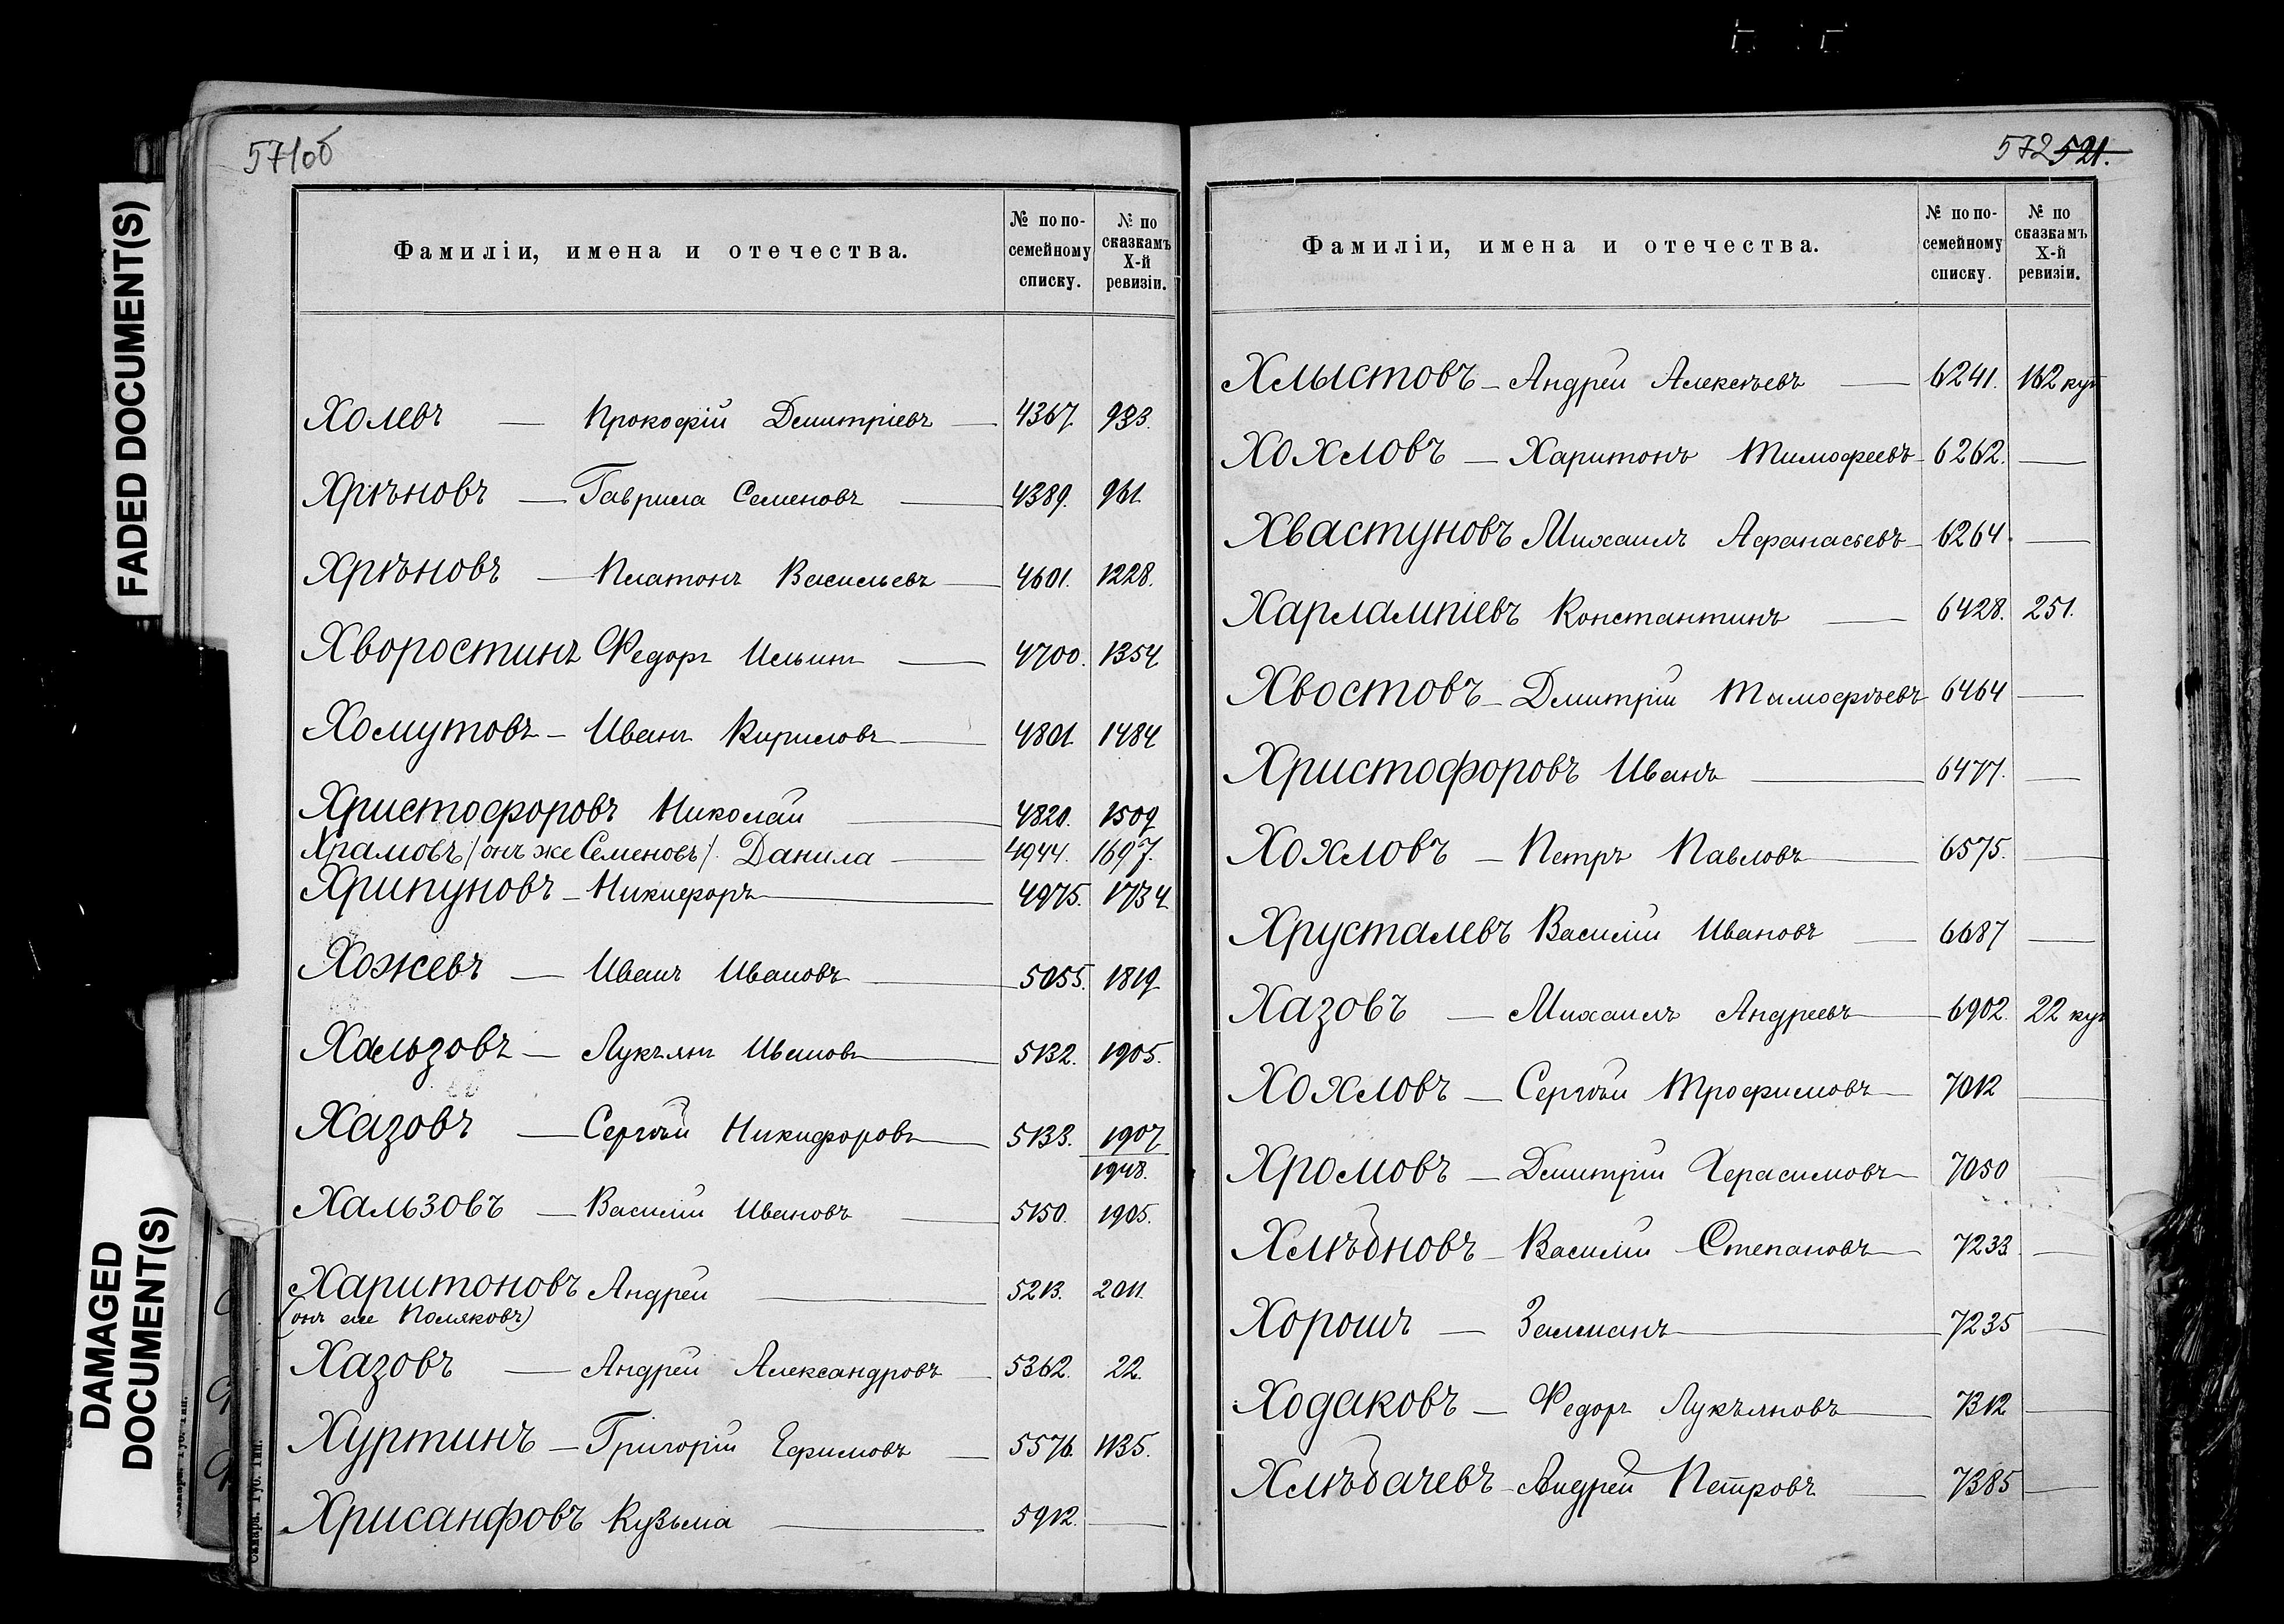 571об
Фамиліи, имена и отечества. № по по-семейному списку. № по сказкамъ X-й ревизіи.
Холевъ — Прокофій Димитріевъ — 4367. 933.
Хрѣновъ — Гаврила Семеновъ — 4389. 961.
Хрѣновъ — Платонъ Васильевъ — 4601. 1228.
Хворостинъ Федоръ Ильинъ — 4700. 1354
Хомутовъ – Иванъ Кириловъ — 4801 1484
Христофоровъ Николай — 4820. 1509
Храмовъ /онъ же Семеновъ/. Данила — 4944. 1697.
Хрипуновъ – Никифоръ — 4975. 1734
Хожевъ — Иванъ Ивановъ — 5055. 1819
Хальзовъ — Лукъянъ Ивановъ — 5132. 1905.
Хазовъ — Сергѣй Никифоровъ — 5133. 1907
1948.
Хальзовъ — Василій Ивановъ — 5150. 1905.
Харитоновъ Андрей — 5213. 2011.
(онъ же Поляковъ)
Хазовъ — Андрей Александровъ — 5362. 22.
Хуртинъ — Григорій Ефимовъ — 5576. 1135.
Хрисанфовъ Кузьма — 5912. —
572 521.
Фамиліи, имена и отечества. № по по-семейному списку. № по сказкамъ X-й ревизіи.
Хлыстовъ – Андрей Алексѣевъ — 6241. 162 куп
Хохловъ — Харитонъ Тимофеевъ – 6262. —
Хвастуновъ Михаилъ Афанасьевъ – 6264. —
Харлампіевъ Константинъ — 6428. 251.
Хвостовъ – Дмитрій Тимофѣевъ 6464 —
Христофоровъ Иванъ — 6477. —
Хохловъ — Петръ Павловъ — 6575. —
Хрусталевъ Василій Ивановъ — 6687 —
Хазовъ — Михаилъ Андреевъ — 6902. 22 куп
Хохловъ — Сергѣй Трофимовъ — 7012 —
Хромовъ — Димитрій Герасимовъ — 7050 —
Хлѣбновъ – Василій Степановъ — 7233 —
Хорошъ — Залманъ — 7235 —
Ходаковъ — Федоръ Лукъяновъ — 7312 —
Хлѣбачевъ – Андрей Петровъ — 7385 —
FADED DOCUMENT(S)
DAMAGED
DOCUMENT(S)
Самара. Губ. Тип.